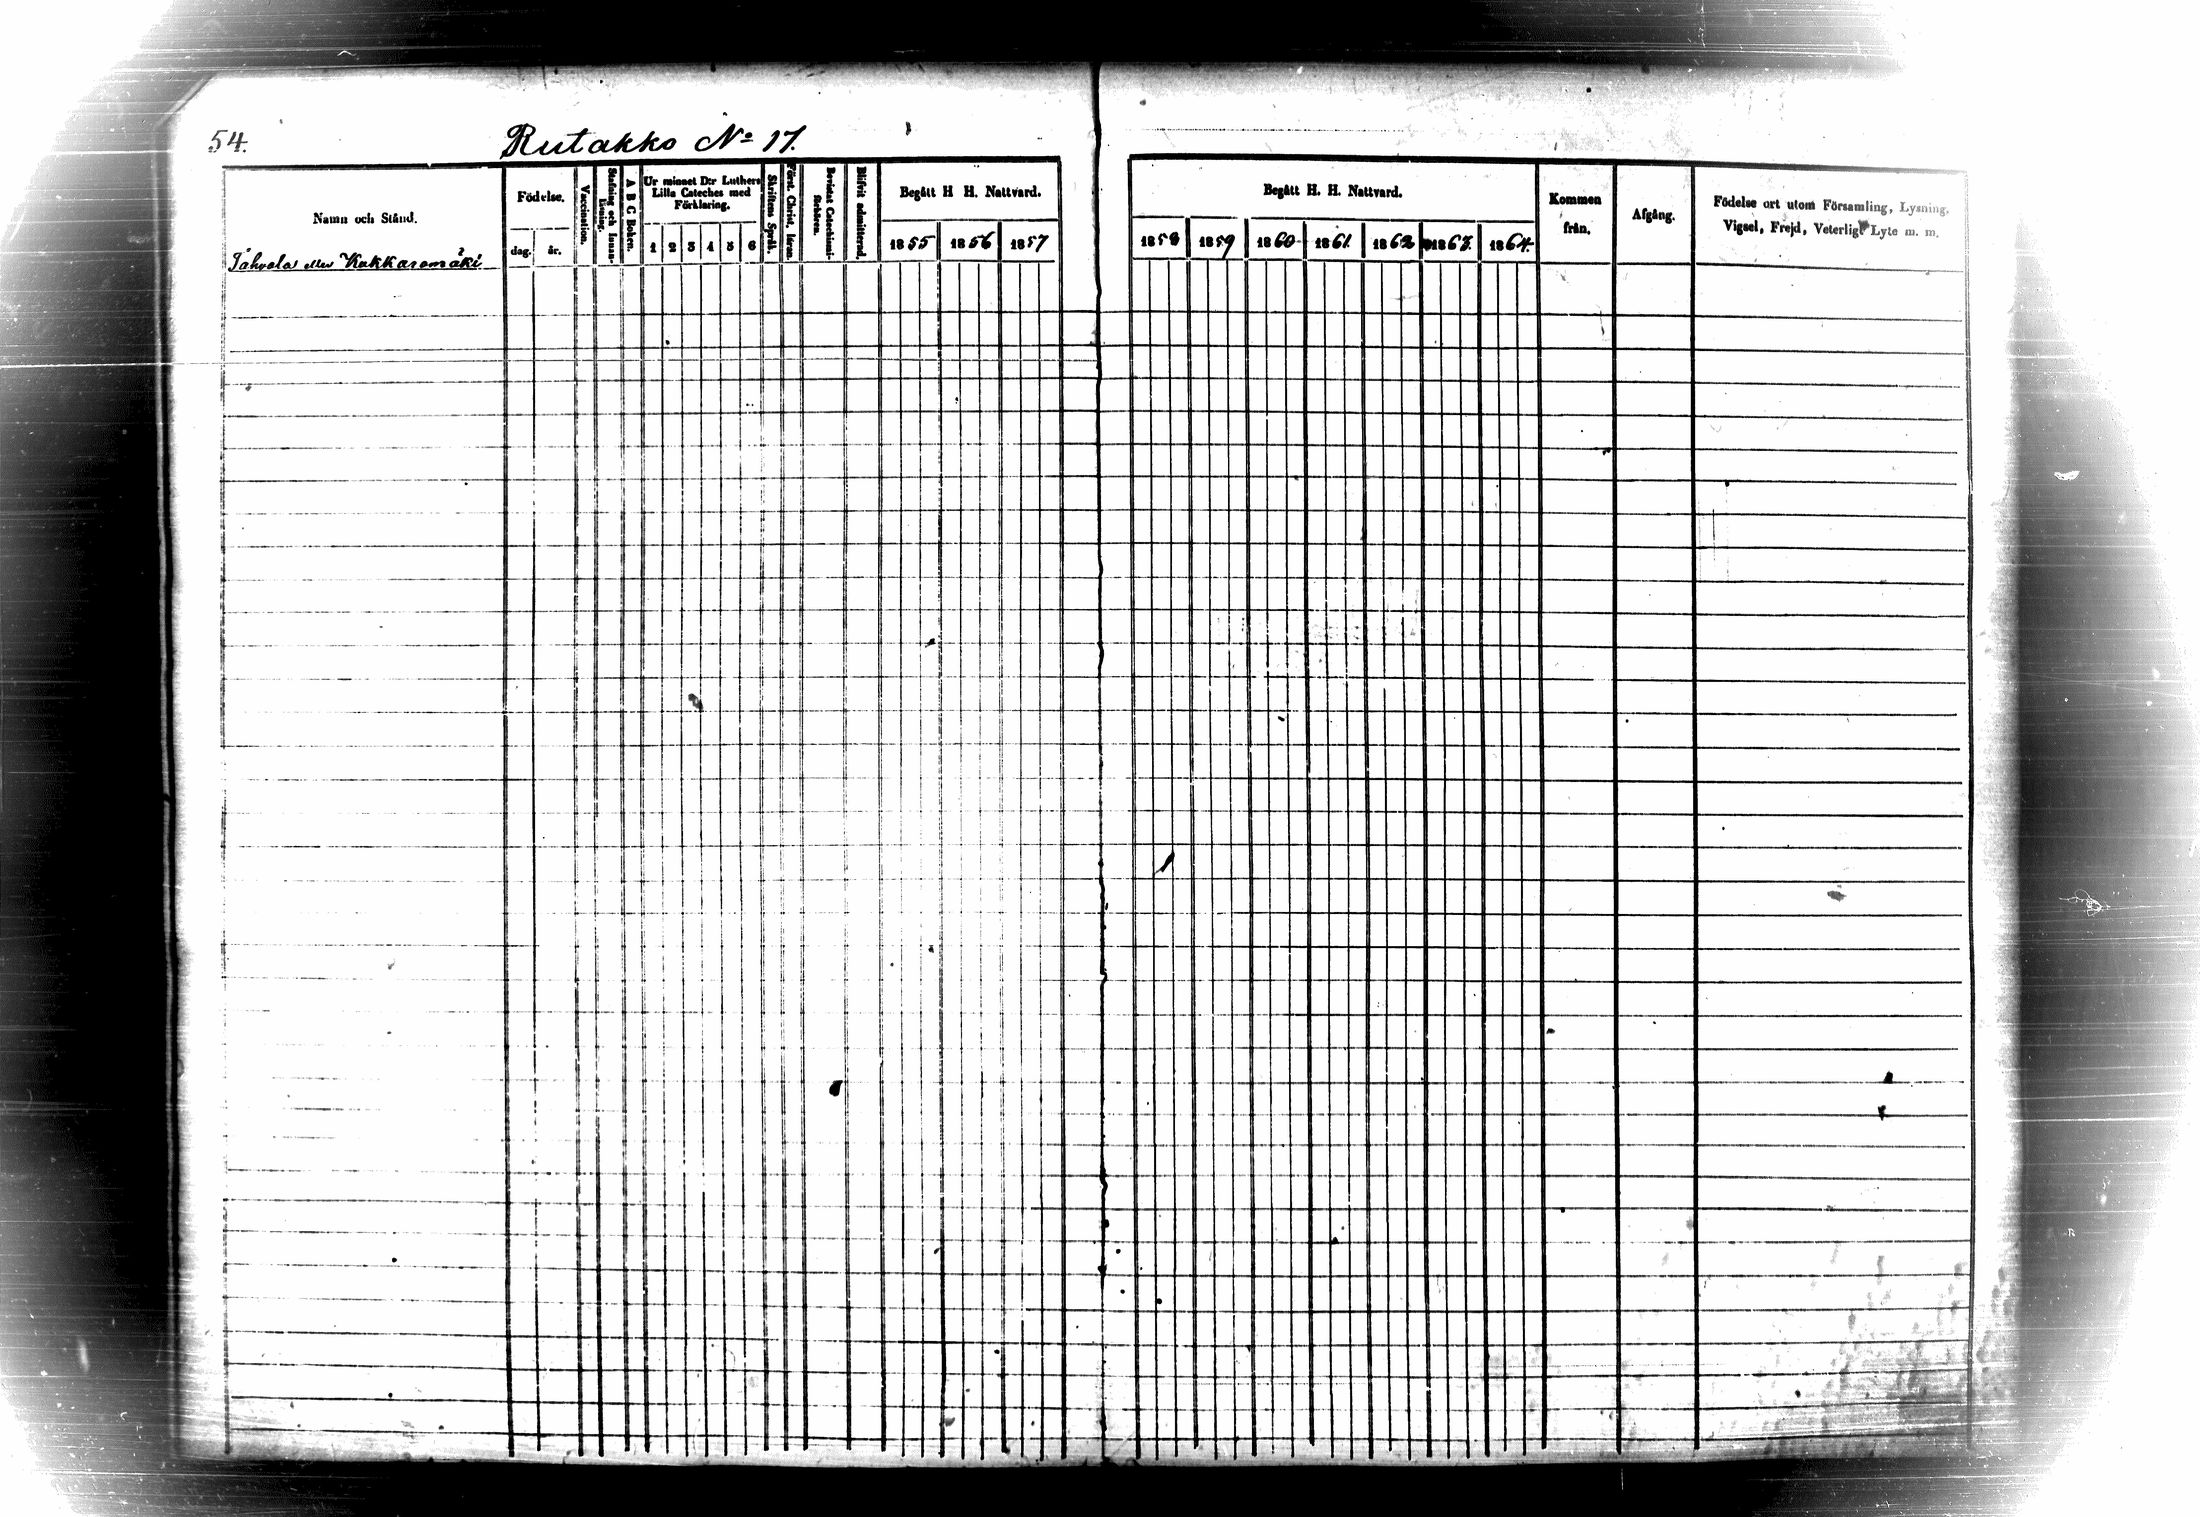 54.
Rutakko No 17.
Namn och Stånd.
Födelse.
dag. år.
Vaccination.
Stafning och Innan-
läsning.
A B C Boken.
Ur minnet D:r Luthers
Lilla Cateches med
Förklaring.
1 2 3 4 5 6
Skriftens Språk.
Först. Christ. läran.
Bevistat Catechismi-
förhören.
Blifvit admitterad.
Begått H. H. Nattvard.
1855 1856 1857
Tahvola eller Kakkaromäki
Begått H. H. Nattvard.
1858 1859 1860 1861. 1862 1863. 1864.
Kommen
från.
Afgång.
Födelse ort utom Församling, Lysning,
Vigsel, Frejd, Veterligt Lyte m. m.